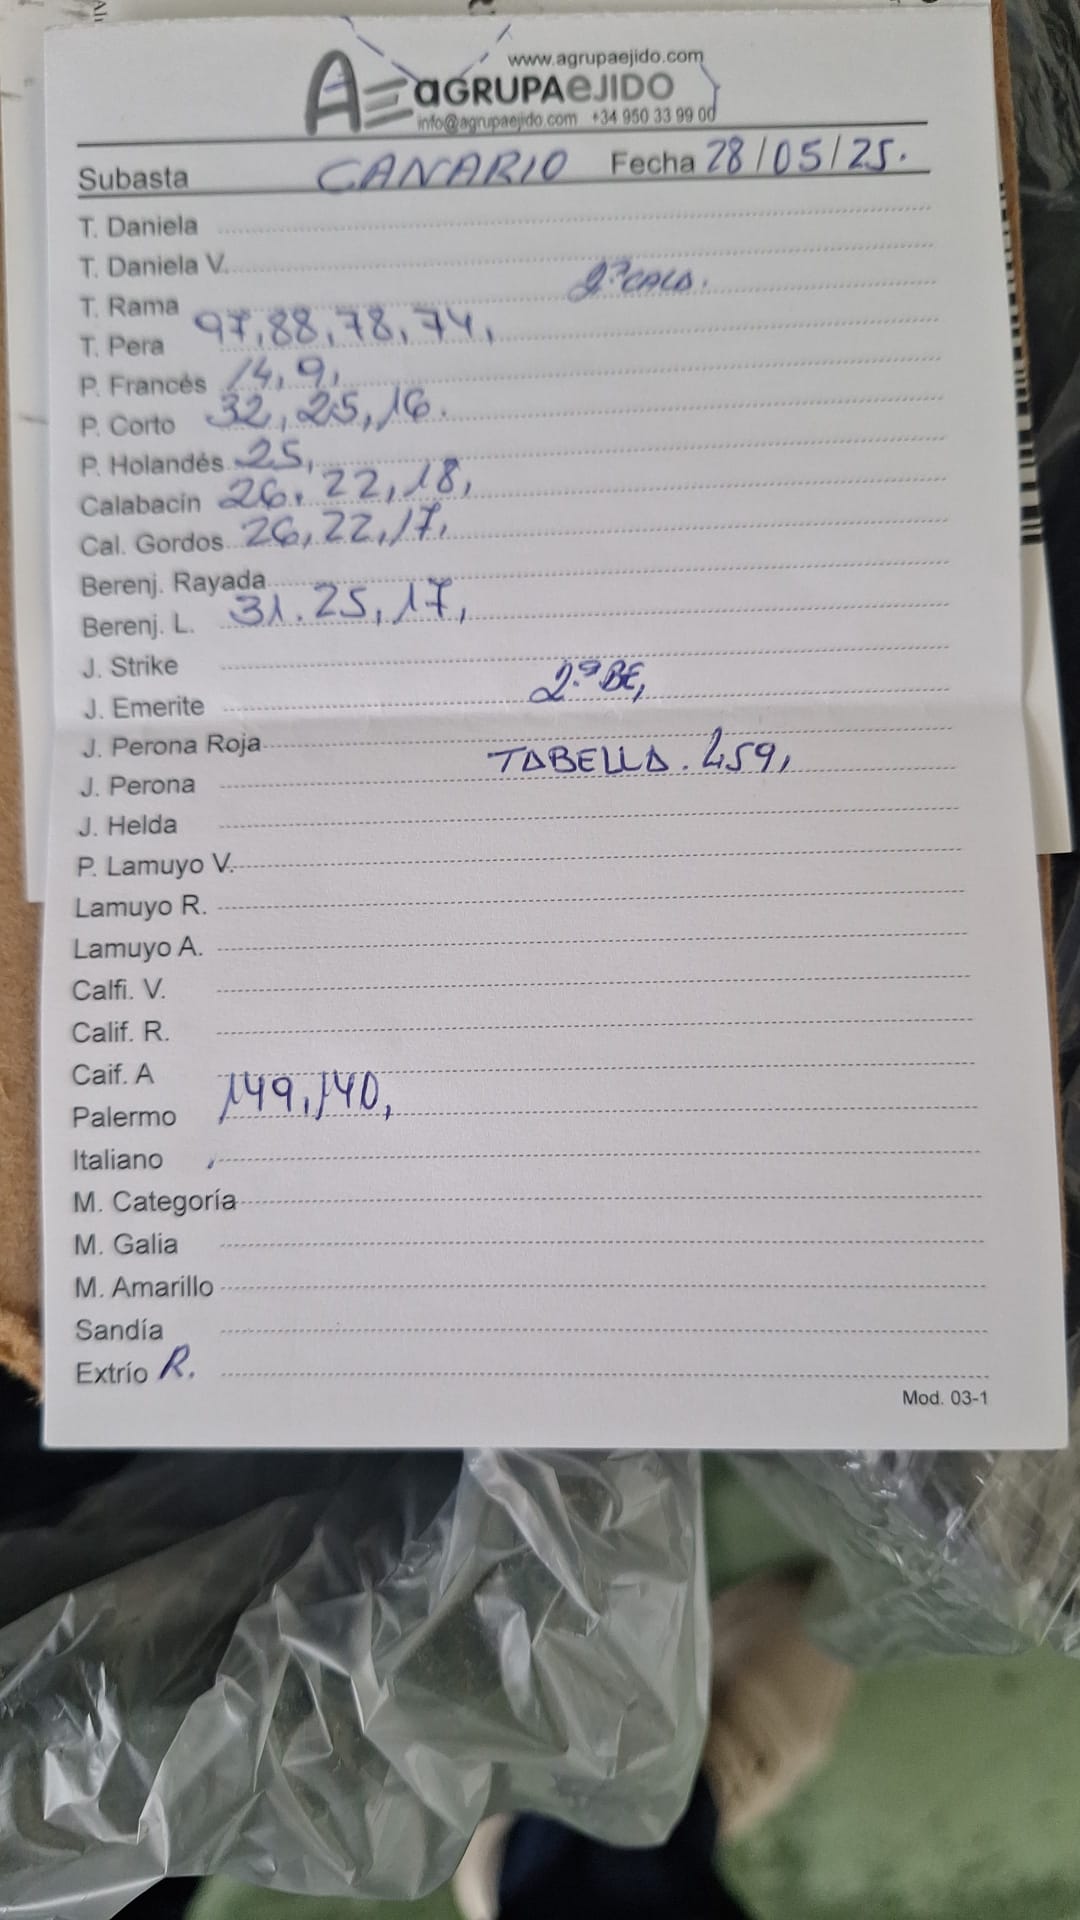 www.agrupaejido.com
AGRUPAEJIDO
info@agrupaejido.com +34 950 33 99 00
Subasta CANARIO Fecha 28/05/25.
T. Daniela
T. Daniela V.
2ª CALA.
T. Rama
T. Pera 97,88,78,74,
P. Francés 14,9,
P. Corto 32,25,16.
P. Holandés 25,
Calabacín 26.22,18,
Cal. Gordos 26,22,17,
Berenj. Rayada
Berenj. L. 31.25,17,
J. Strike
J. Emerite 2.ª BE,
J. Perona Roja
TABELLA. 459,
J. Perona
J. Helda
P. Lamuyo V.
Lamuyo R.
Lamuyo A.
Calfi. V.
Calif. R.
Caif. A
Palermo 149,140,
Italiano
M. Categoría
M. Galia
M. Amarillo
Sandía
Extrío R.
Mod. 03-1